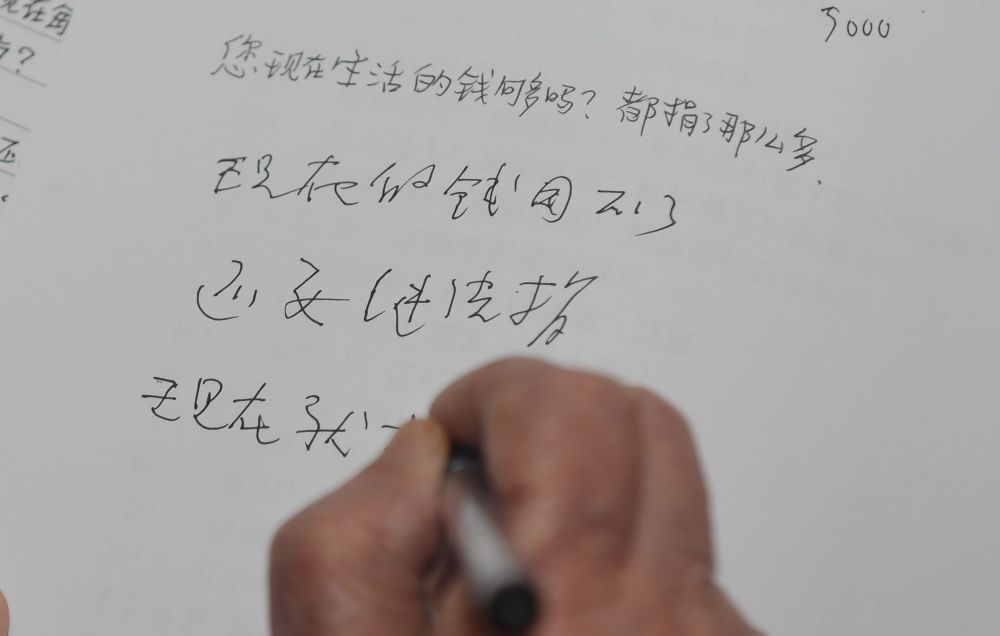 现在角
5000
您现在生活的钱够吗？都捐了那么多.
现在的钱用不了
还要继续捐
现在我